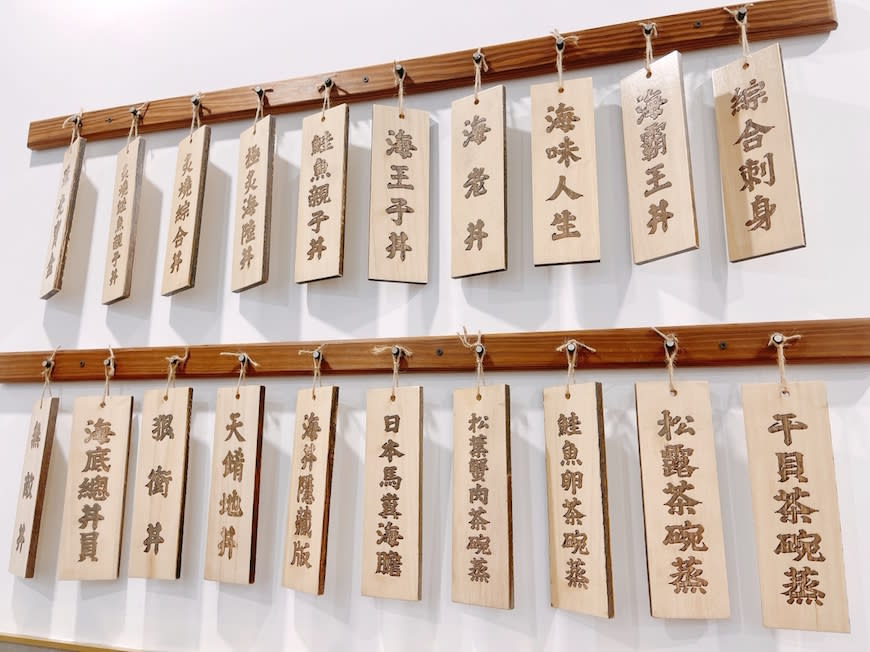 綜合刺身
海霸王丼
海味人生
海老丼
海王子丼
鮭魚親子丼
極炙海陸丼
炙燒綜合丼
炙燒鮭魚親子丼
干貝茶碗蒸
松露茶碗蒸
鮭魚卵茶碗蒸
松葉蟹肉茶碗蒸
日本馬糞海膽
海丼隱藏版
狠衝丼
海底總丼員
無敵丼